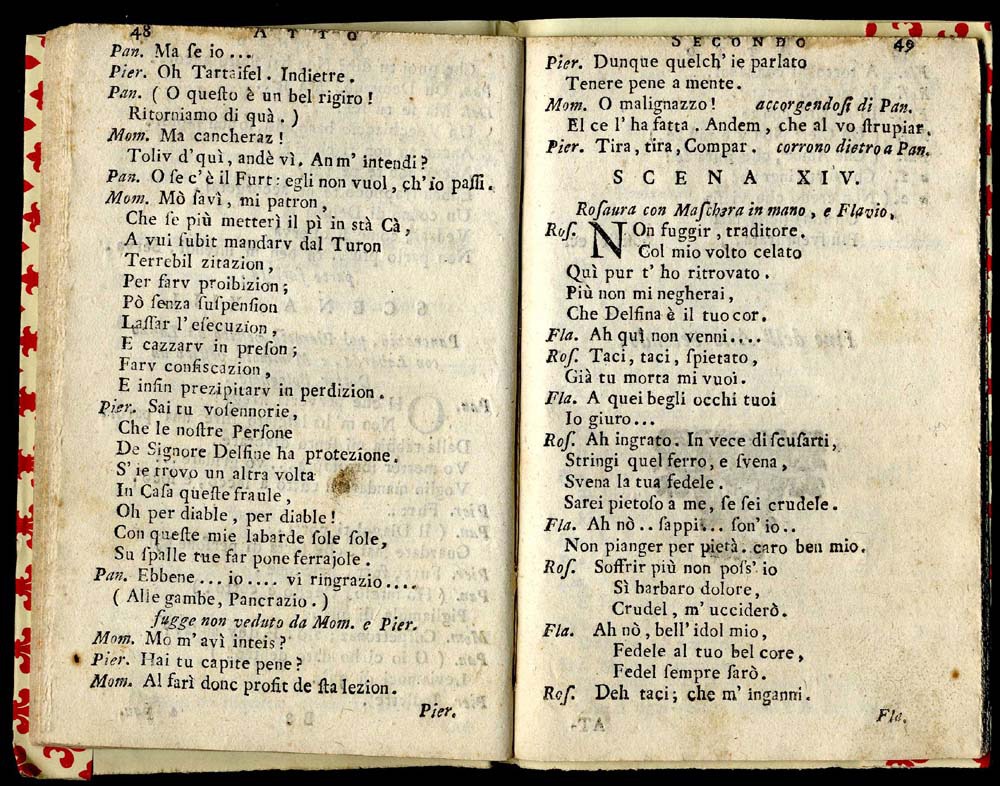 48 ATTO
Pan. Ma ſe io ...
Pier. Oh Tartaifel. Indietre.
Pan. ( O queſto è un bel rigiro !
Ritorniamo di quà. )
Mom. Ma cancheraz !
Toliv d'quì, andè vì. An m' intendi ?
Pan. O ſe c'è il Furt: egli non vuol, ch'io paſſi.
Mom. Mò ſavì, mi patron,
Che ſe più metterì il pì in stà Cà,
A vui ſubit mandarv dal Turon
Terrebil zitazion,
Per farv proibizion;
Pò ſenza ſuſpenſion
Laſſar l'eſecuzion,
E cazzarv in preſon;
Farv confiſcazion,
E inſin prezipitarv in perdizion.
Pier. Sai tu voſennorie,
Che le noſtre Perſone
De Signore Delfine ha protezione.
S' ie trovo un altra volta
In Caſa queſte fraule,
Oh per diable, per diable !
Con queſte mie labarde ſole ſole,
Su ſpalle tue far pone ferrajole.
Pan. Ebbene ... io .... vi ringrazio ....
( Alle gambe, Pancrazio. )
fugge non veduto da Mom. e Pier.
Mom. Mo m' avì inteis ?
Pier. Hai tu capite pene ?
Mom. Al farì donc profit de ſta lezion.
Pier.
SECONDO 49
Pier. Dunque quelch' ie parlato
Tenere pene a mente.
Mom. O malignazzo ! accorgendoſi di Pan.
El ce l' ha fatta. Andem, che al vo ſtrupiar.
Pier. Tira, tira, Compar. corrono dietro a Pan.
SCENA XIV.
Roſaura con Maſchera in mano, e Flavio.
Roſ. NOn fuggir, traditore.
Col mio volto celato
Quì pur t' ho ritrovato.
Più non mi negherai,
Che Delfina è il tuo cor.
Fla. Ah quì non venni....
Roſ. Taci, taci, ſpietato,
Già tu morta mi vuoi.
Fla. A quei begli occhi tuoi
Io giuro...
Roſ. Ah ingrato. In vece di ſcuſarti,
Stringi quel ferro, e ſvena,
Svena la tua fedele.
Sarei pietoſo a me, ſe ſei crudele.
Fla. Ah nò.. ſappi... ſon' io..
Non pianger per pietà. caro ben mio.
Roſ. Soffrir più non poſſ' io
Sì barbaro dolore,
Crudel, m' ucciderò.
Fla. Ah nò, bell' idol mio,
Fedele al tuo bel core,
Fedel ſempre ſarò.
Roſ. Deh taci; che m' inganni.
Fla.